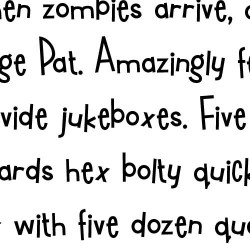 en zombies arrive, 
ge Pat. Amazingly f
vide jukeboxes. Five
ards hex bolty quick
with five dozen qu